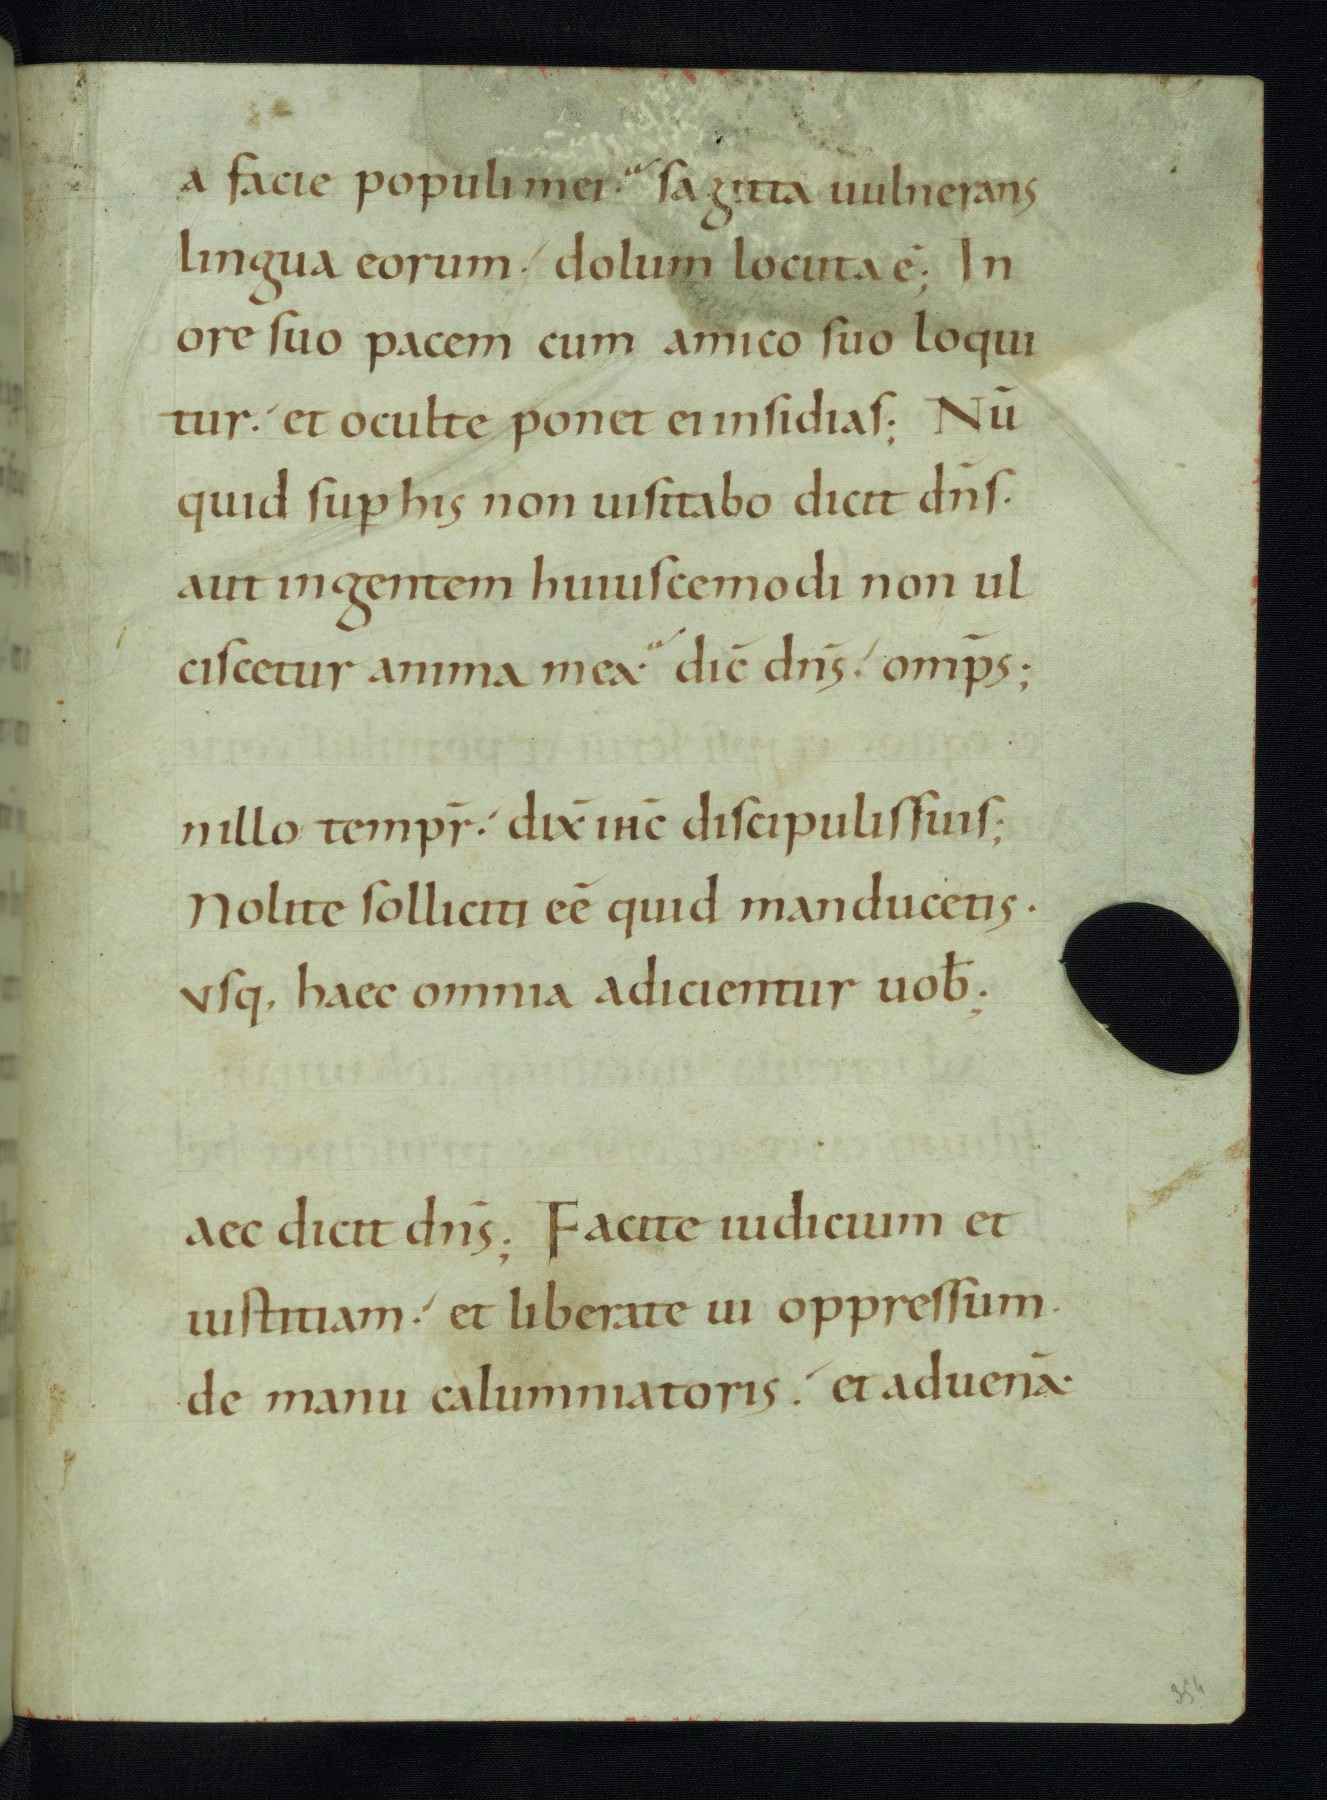 a facie populi mei· sagitta uulnerans
lingua eorum· dolum locuta ē; In
ore suo pacem cum amico suo loqui
tur· et oculte ponet ei insidias; Nū
quid sup̱ his non uisitabo dicit dn̄s·
aut in gentem huiuscemodi non ul
ciscetur anima mea· dic̄ dn̄s· omp̄s;
n illo tempr̄· dix̄ ihc̄ discipulis suis;
Nolite solliciti eē quid manducetis·
vsq, haec omnia adicientur uob̄;
aec dicit dn̄s; Facite iudicium et
iustitiam· et liberate ui oppressum·
de manu calumniatoris· et aduenā·
354